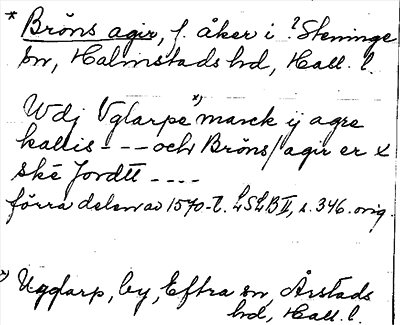 * Bröns agir, f. åker i ? Steninge
sn, Halmstads hd, Hall. l.
Wdj Vglarpe *) marck ij agre
kallis - - - och Bröns/agir er
ske Jordtt - - - -
förra delen av 1570-t. LSLB II, s. 346. orig.
*) Ugglarp, by, Eftra sn, Årstads
hd, Hall. l.